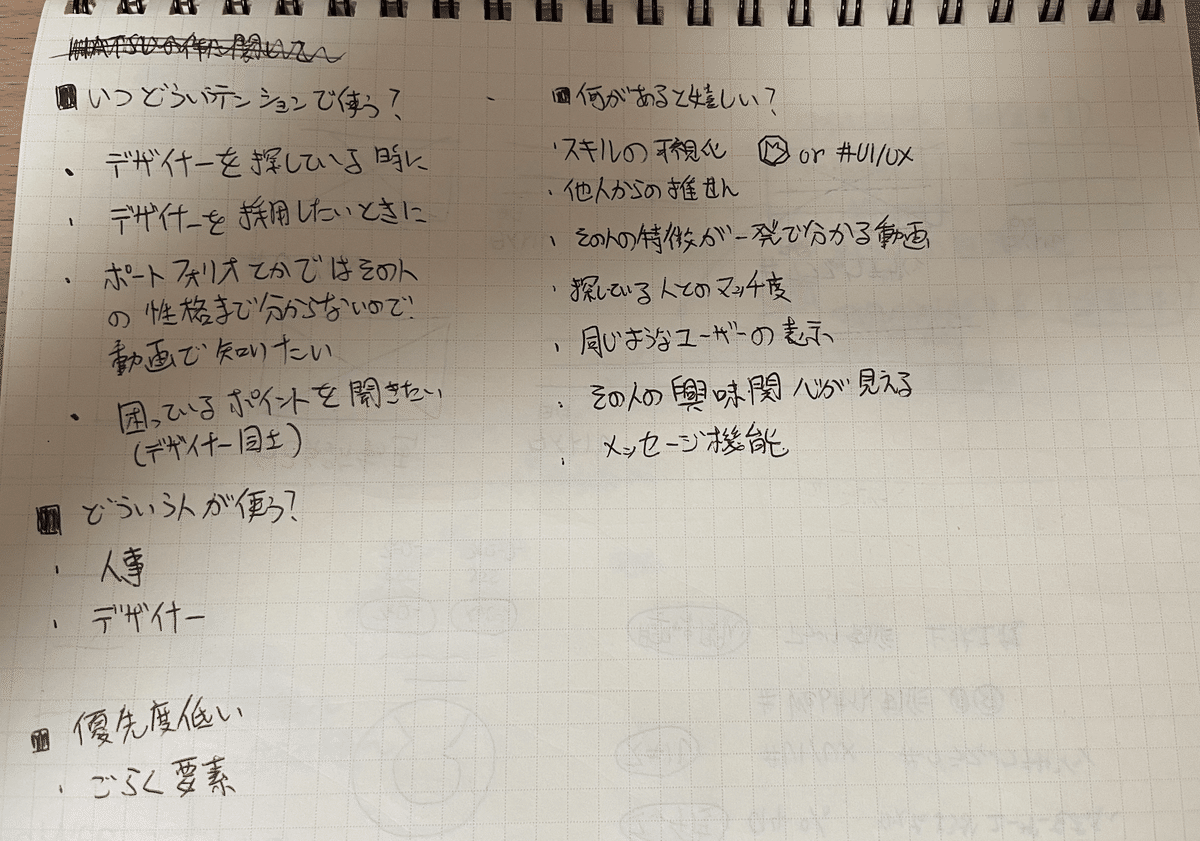 ■いつどういテンションで使う?
・デザイナーを探している時に
・デザイナーを採用したいときに
・ポートフォリオとかではその人
の性格まで分からないので
動画で知りたい
・困っているポイントを聞きたい
(デザイナー同士)
■どういう人が使う?
・人事
・デザイナー
■優先度低い
・ごらく要素
■何があると嬉しい?
・スキルの可視化 or #UI/UX
・他人からの推せん
・その人の特徴が一発で分かる動画
・探している人とのマッチ度
・同じようなユーザーの表示
・その人の興味関心が見える
・メッセージ機能